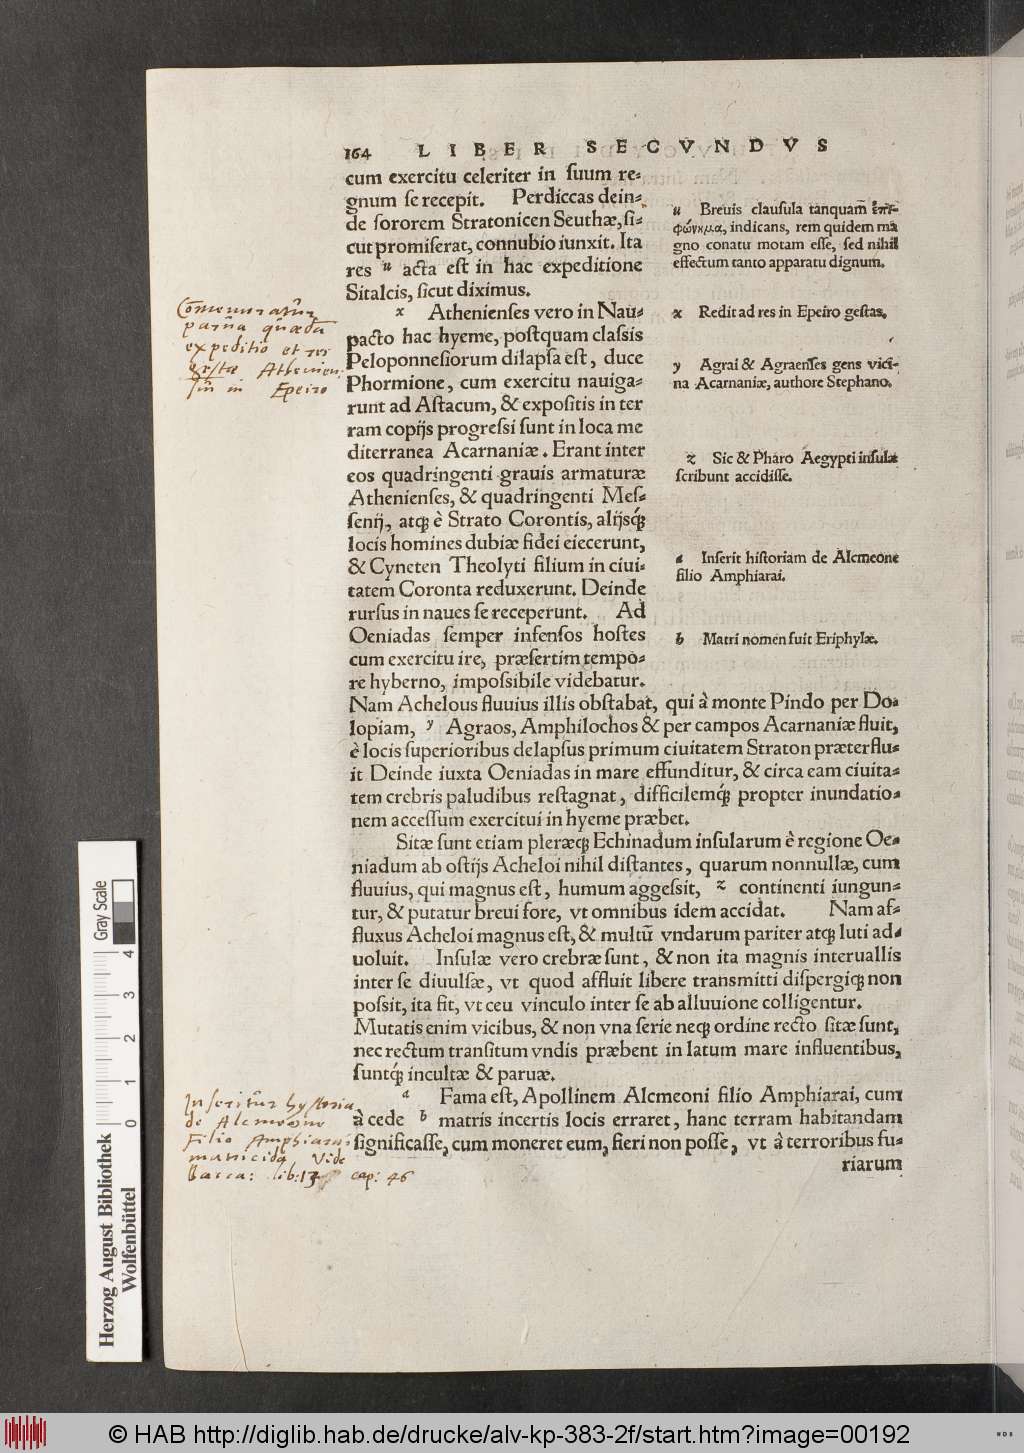 164 LIBER SECVNDVS
cum exercitu celeriter in ſuum re-
gnum ſe recepit. Perdiccas dein-
de ſororem Stratonicen Seuthæ, ſi-
cut promiſerat, connubio iunxit. Ita
res u acta eſt in hac expeditione
Sitalcis, ſicut diximus.
x Athenienſes vero in Nau-
pacto hac hyeme, poſtquam claſsis
Peloponneſiorum dilapſa eſt, duce
Phormione, cum exercitu nauiga-
runt ad Aſtacum, & expoſitis in ter
ram copijs progreſsi ſunt in loca me
diterranea Acarnaniæ. Erant inter
eos quadringenti grauis armaturæ
Athenienſes, & quadringenti Meſ-
ſenij, atq; è Strato Corontis, alijsq́;
locis homines dubiæ fidei eiecerunt,
& Cyneten Theolyti filium in ciui-
tatem Coronta reduxerunt. Deinde
rurſus in naues ſe receperunt. Ad
Oeniadas ſemper infenſos hoſtes
cum exercitu ire, præſertim tempo-
re hyberno, impoſsibile videbatur.
Nam Achelous fluuius illis obſtabat, qui à monte Pindo per Do-
lopiam, y Agraos, Amphilochos & per campos Acarnaniæ fluit,
è locis ſuperioribus delapſus primum ciuitatem Straton præterflu-
it Deinde iuxta Oeniadas in mare effunditur, & circa eam ciuita-
tem crebris paludibus reſtagnat, difficilemq́; propter inundatio-
nem acceſſum exercitui in hyeme præbet.
Sitæ ſunt etiam pleræq; Echinadum inſularum è regione Oe-
niadum ab oſtijs Acheloi nihil diſtantes, quarum nonnullæ, cum
fluuius, qui magnus eſt, humum aggeſsit, z continenti iungun-
tur, & putatur breui fore, vt omnibus idem accidat. Nam af-
fluxus Acheloi magnus eſt, & multũ vndarum pariter atq; luti ad-
uoluit. Inſulæ vero crebræ ſunt, & non ita magnis interuallis
inter ſe diuulſæ, vt quod affluit libere transmitti diſpergiq; non
poſsit, ita fit, vt ceu vinculo inter ſe ab alluuione colligentur.
Mutatis enim vicibus, & non vna ſerie neq; ordine recto ſitæ ſunt,
nec rectum tranſitum vndis præbent in latum mare influentibus,
ſuntq́; incultæ & paruæ.
a Fama eſt, Apollinem Alcmeoni filio Amphiarai, cum
à cede b matris incertis locis erraret, hanc terram habitandam
ſignificaſſe, cum moneret eum, fieri non poſſe, vt à terroribus fu-
riarum
u Breuis clauſula tanquam̃ ἐπι-
φώνημα, indicans, rem quidem ma
gno conatu motam eſſe, ſed nihil
effectum tanto apparatu dignum.
x Redit ad res in Epeiro geſtas.
y Agrai & Agraenſes gens vici-
na Acarnaniæ, authore Stephano.
z Sic & Pharo Aegypti inſulæ
ſcribunt accidiſſe.
a Inſerit hiſtoriam de Alcmeone
filio Amphiarai.
b Matri nomen fuit Eriphylæ.
expeditio et res
gestæ Athenien
in Epeiro
Inseritur hystoria
de Alcmeone
Filio Amphiarai
matricida Vide
lib: 13 cap: 46
Gray Scale
0 1 2 3 4
Herzog August Bibliothek
Wolfenbüttel
© HAB http://diglib.hab.de/drucke/alv-kp-383-2f/start.htm?image=00192